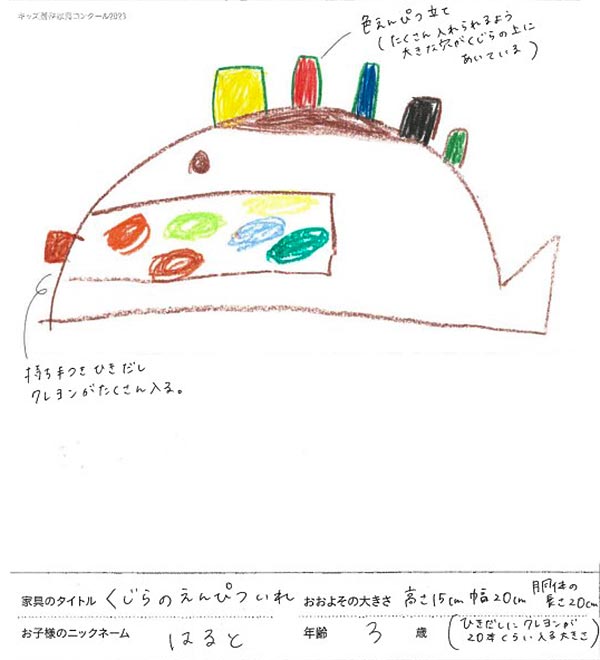 キッズ最深家具コンクール2023
色えんぴつ立て
(たくさん入れられるよう
大きな穴がくじらの上に
あいている)
持ち手つきひきだし
クレヨンがたくさん入る。
家具のタイトル くじらのえんぴついれ おおよその大きさ 高さ15cm 幅20cm 胴体の長さ20cm
お子様のニックネーム はると 年齢 3 歳 (ひきだしにクレヨンが
20本くらい入る大きさ)